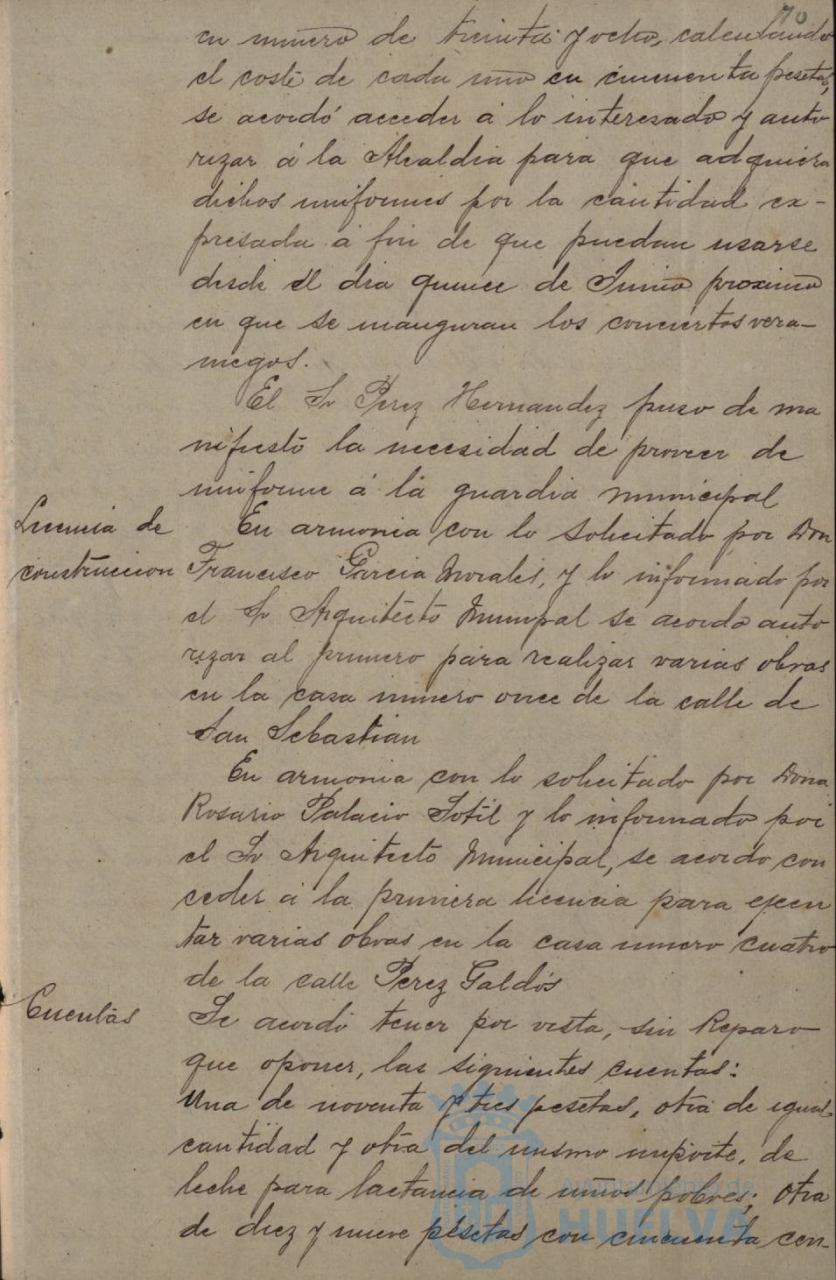 70
en numero de treinta y ocho, calculando
el coste de cada uno en cincuenta pesetas,
se acordó acceder á lo interesado y auto
rizar á la Alcaldia para que adquiera
dichos uniformes por la cantidad ex-
presada á fin de que puedan usarse
desde el dia quince de Junio proximo
en que se inauguran los conciertos vera-
niegos.
El Sr Perez Hernandez puso de ma
nifiesto la necesidad de proveer de
uniforme á la guardia municipal
Licencia de
construccion
En armonia con lo solicitado por Don
Francisco Garcia Morales, y lo informado por
el Sr Arquitecto Municipal se acordo auto
rizar al primero para realizar varias obras
en la casa numero once de la calle de
San Sebastian
En armonia con lo solicitado por Dona
Rosario Palacio Sotil y lo informado por
el Sr Arquitecto Municipal, se acordo con
ceder á la primera licencia para ejecu
tar varias obras en la casa numero cuatro
de la calle Perez Galdós
Cuentas
Se acordó tener por vista, sin Reparo
que oponer, las siguientes cuentas:
Una de noventa y tres pesetas, otra de igual
cantidad y otra del mismo importe, de
leche para lactancia de niños pobres; otra
de diez y nueve pesetas con cincuenta cen-
Ayuntamiento de
HUELVA